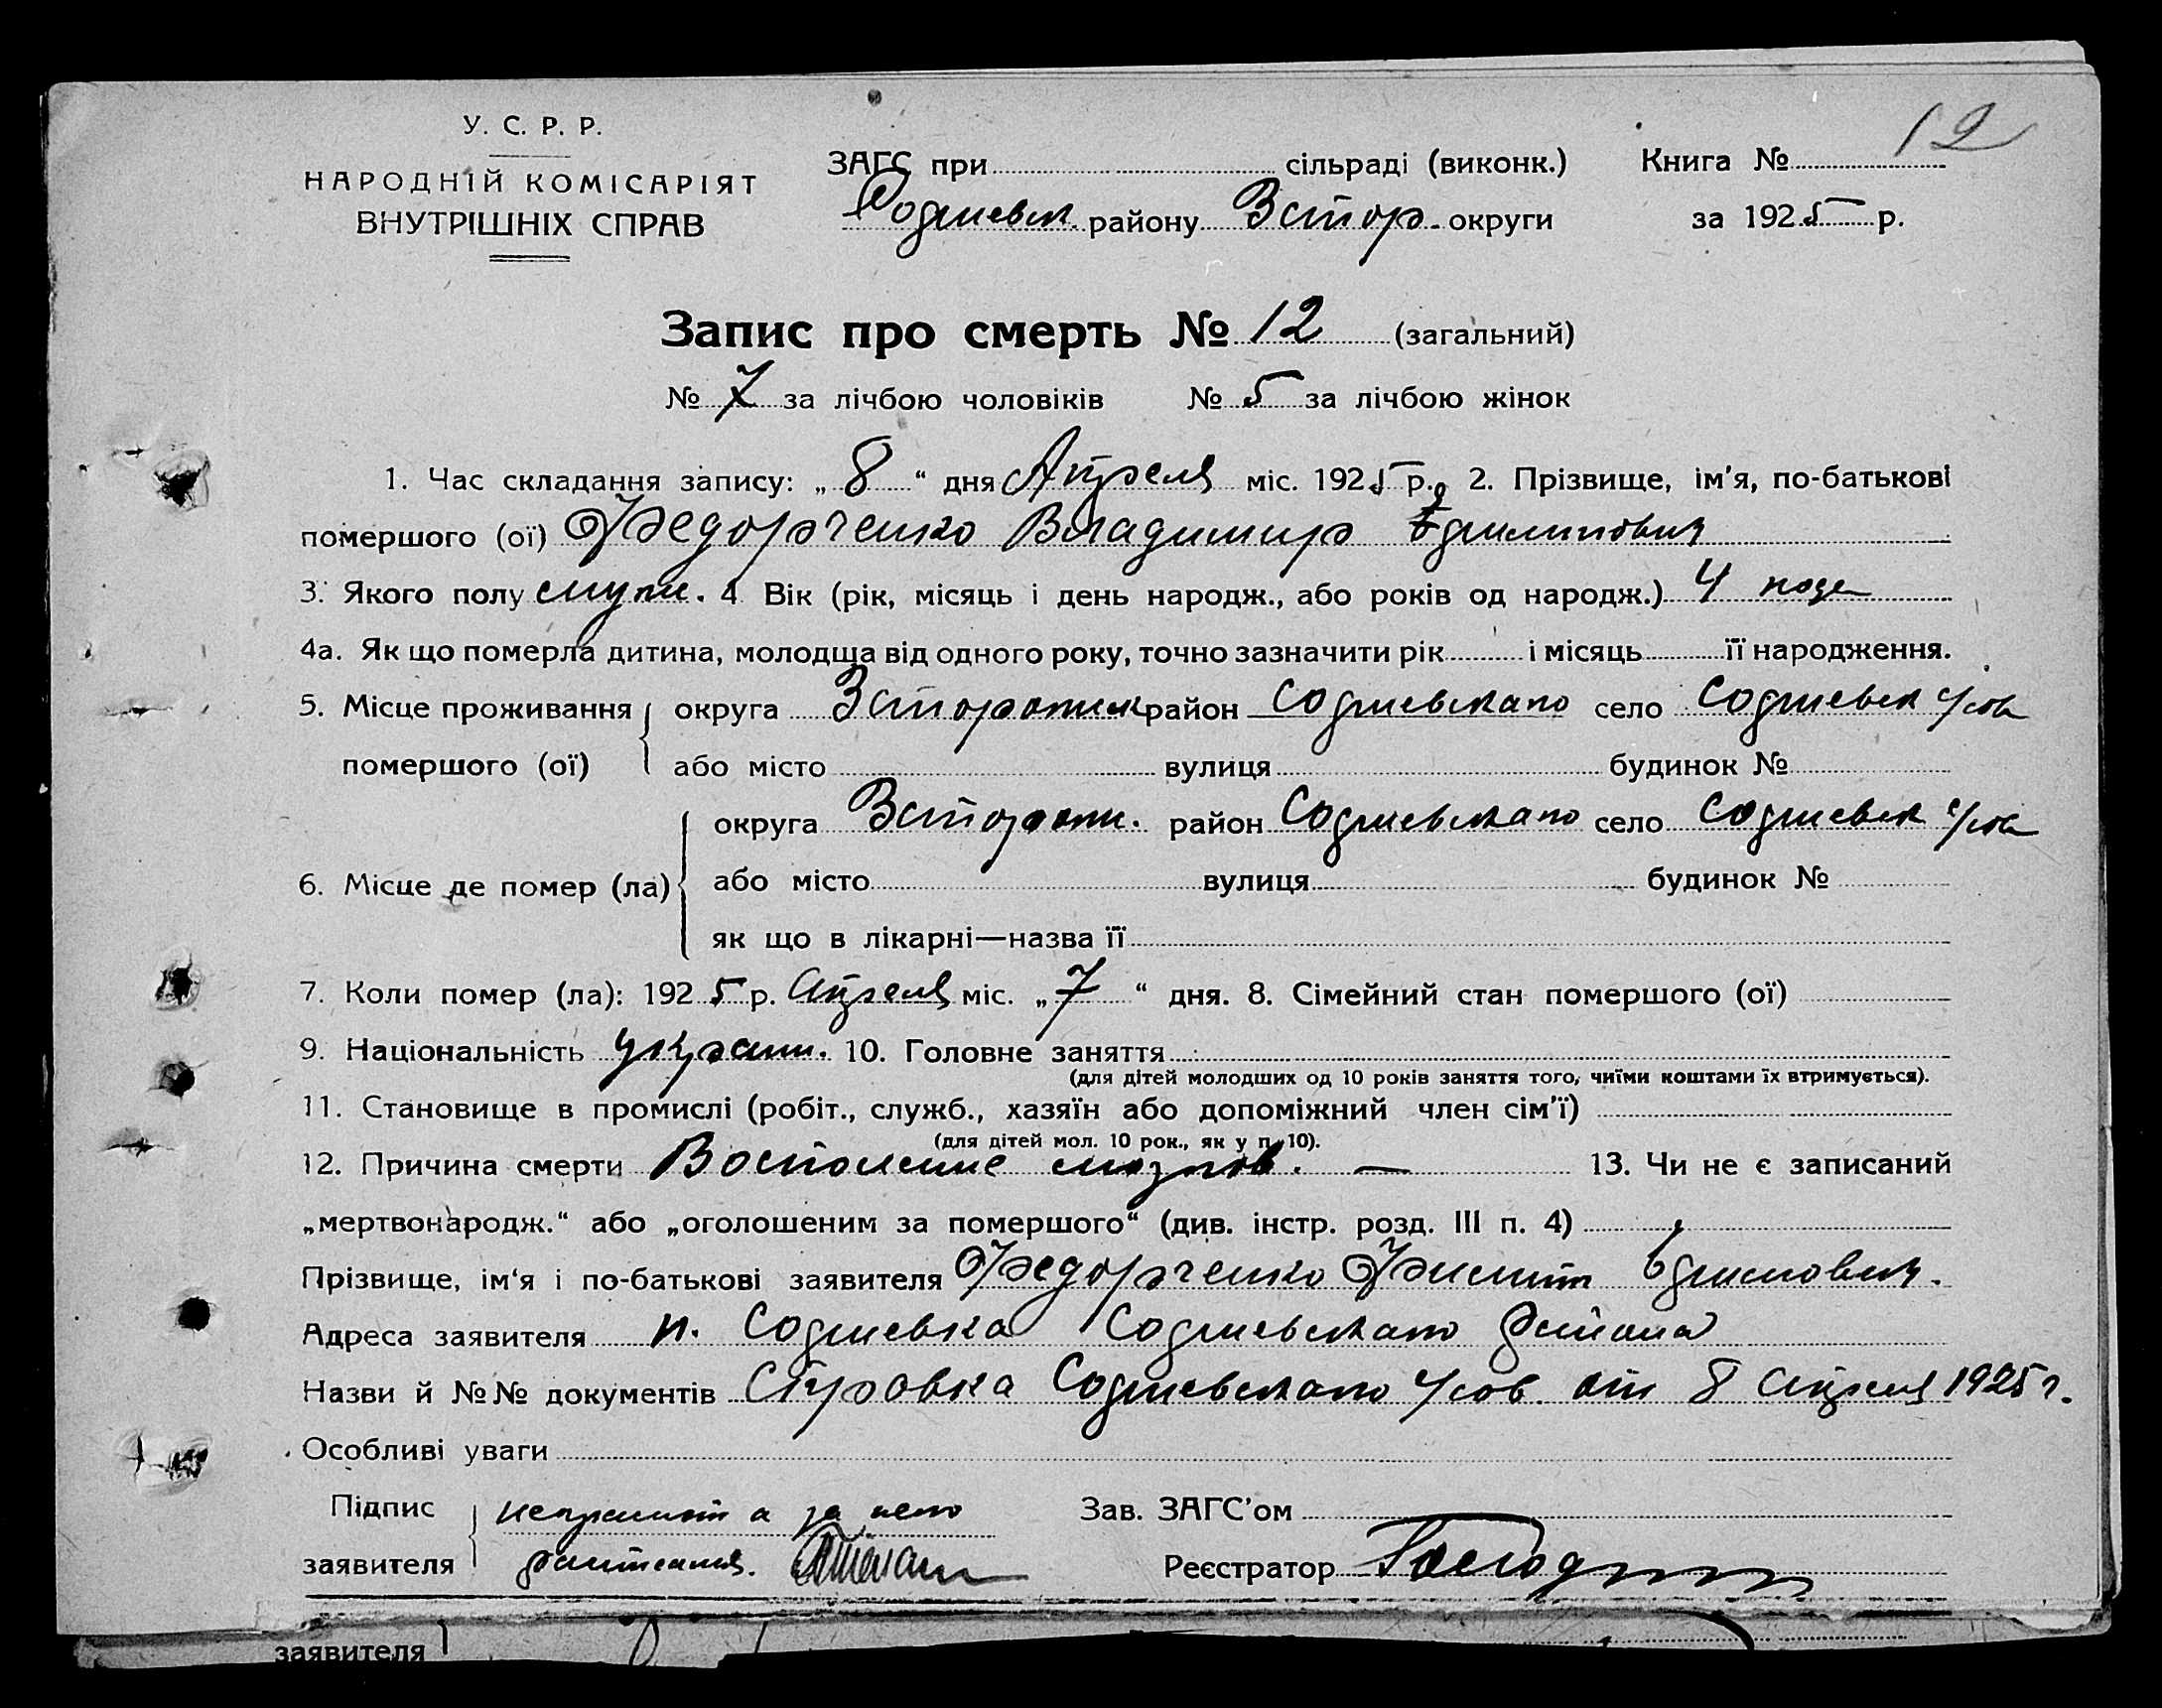 У. С. Р. Р.
НАРОДНІЙ КОМІСАРІЯТ
ВНУТРІШНІХ СПРАВ
ЗАГС при сільраді (виконк.) Книга № 12
району округи за 1925 р.
Запис про смерть № 12 (загальний)
№ 7 за лічбою чоловіків № 5 за лічбою жінок
1. Час складання запису: „ 8 “ дня Апреля міс. 1925 р. 2. Прізвище, ім'я, по-батькові
помершого (ої) Федорченко Владимир
3. Якого полу муж. 4 Вік (рік, місяць і день народж., або років од народж.) 4 года
4а. Як що померла дитина, молодща від одного року, точно зазначити рік і місяць її народження.
5. Місце проживання округа район Софиевского село Софиевск с/сов
помершого (ої) або місто вулиця будинок №
округа район Софиевского село Софиевск с/сов
6. Місце де помер (ла) або місто вулиця будинок №
як що в лікарні—назва її
7. Коли помер (ла): 1925 р. Апреля міс. „ 7 “ дня. 8. Сімейний стан помершого (ої)
9. Національність украин. 10. Головне заняття
(для дітей молодших од 10 років заняття того, чиїми коштами їх втримується).
11. Становище в промислі (робіт., служб., хазяїн або допоміжний член сім'ї)
(для дітей мол. 10 рок., як у п. 10).
12. Причина смерти Воспаление мозгов. — 13. Чи не є записаний
„мертвонародж.“ або „оголошеним за помершого“ (див. інстр. розд. III п. 4)
Прізвище, ім'я і по-батькові заявителя Федорченко Филипп
Адреса заявителя с. Софиевка Софиевского района
Назви й №№ документів Справка Софиевского с/сов. от 8 Апреля 1925 г.
Особливі уваги
Підпис неграмотн а за него Зав. ЗАГС'ом
заявителя расписался. Реєстратор
заявителя